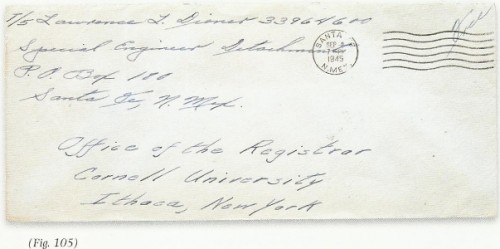 T/5 Lawrence L. Diener 33964600
Special Engineer Detachment
P.O. Box 180
Santa Fe, N. Mex.
SANTA
SEP
1945
N. MEX.
Free
Office of the Registrar
Cornell University
Ithaca, New York
(Fig. 105)